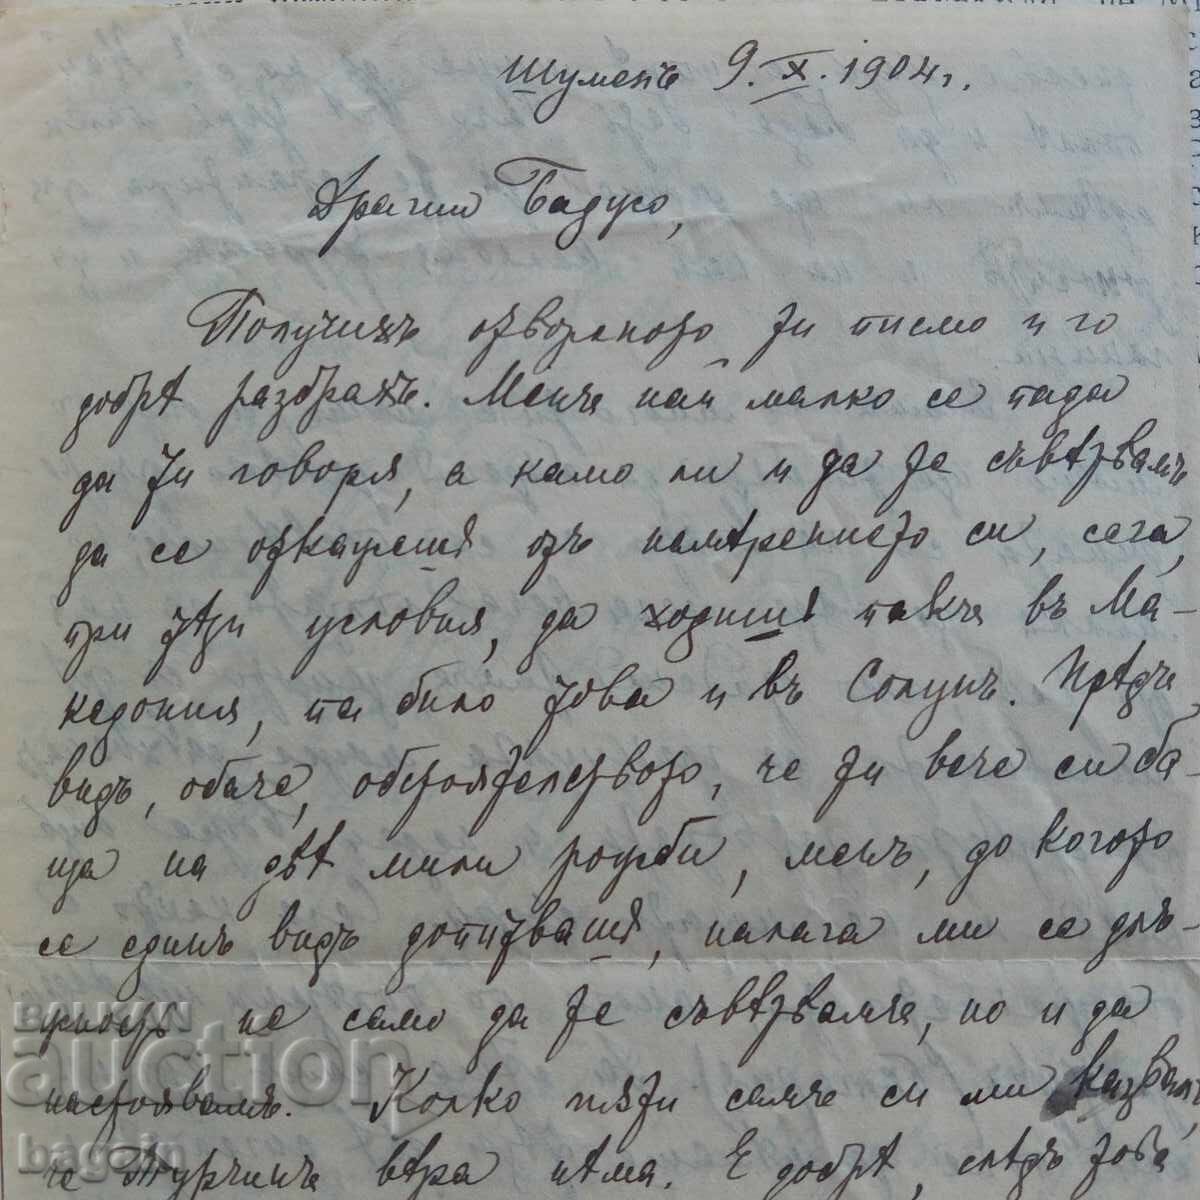 Шуменъ 9.X.1904г.
Драгий Бадуко,
Получихъ отвореното ти писмо и го
добрѣ разбрахъ. Менъ най малко се пада
да ти говоря, а камо ли и да те съвѣтвамъ
да се откажешъ отъ намѣрението си, сега,
при тѣзи условия, да ходишъ пакъ въ Ма-
кедония, па било това и въ Солунъ. Прѣдъ
видъ, обаче, обстоятелството, че ти вече си ба-
ща на двѣ мили рожби, менъ, до когото
се единъ видъ допитвашъ, налага ми се длъ-
жность не само да те съвѣтвамъ, но и да
настоявамъ. Колко пѫти самъ си ми казвалъ,
че Турчинъ вѣра нѣма. Е добрѣ, слѣдъ това
BALKAN
auction
bagain